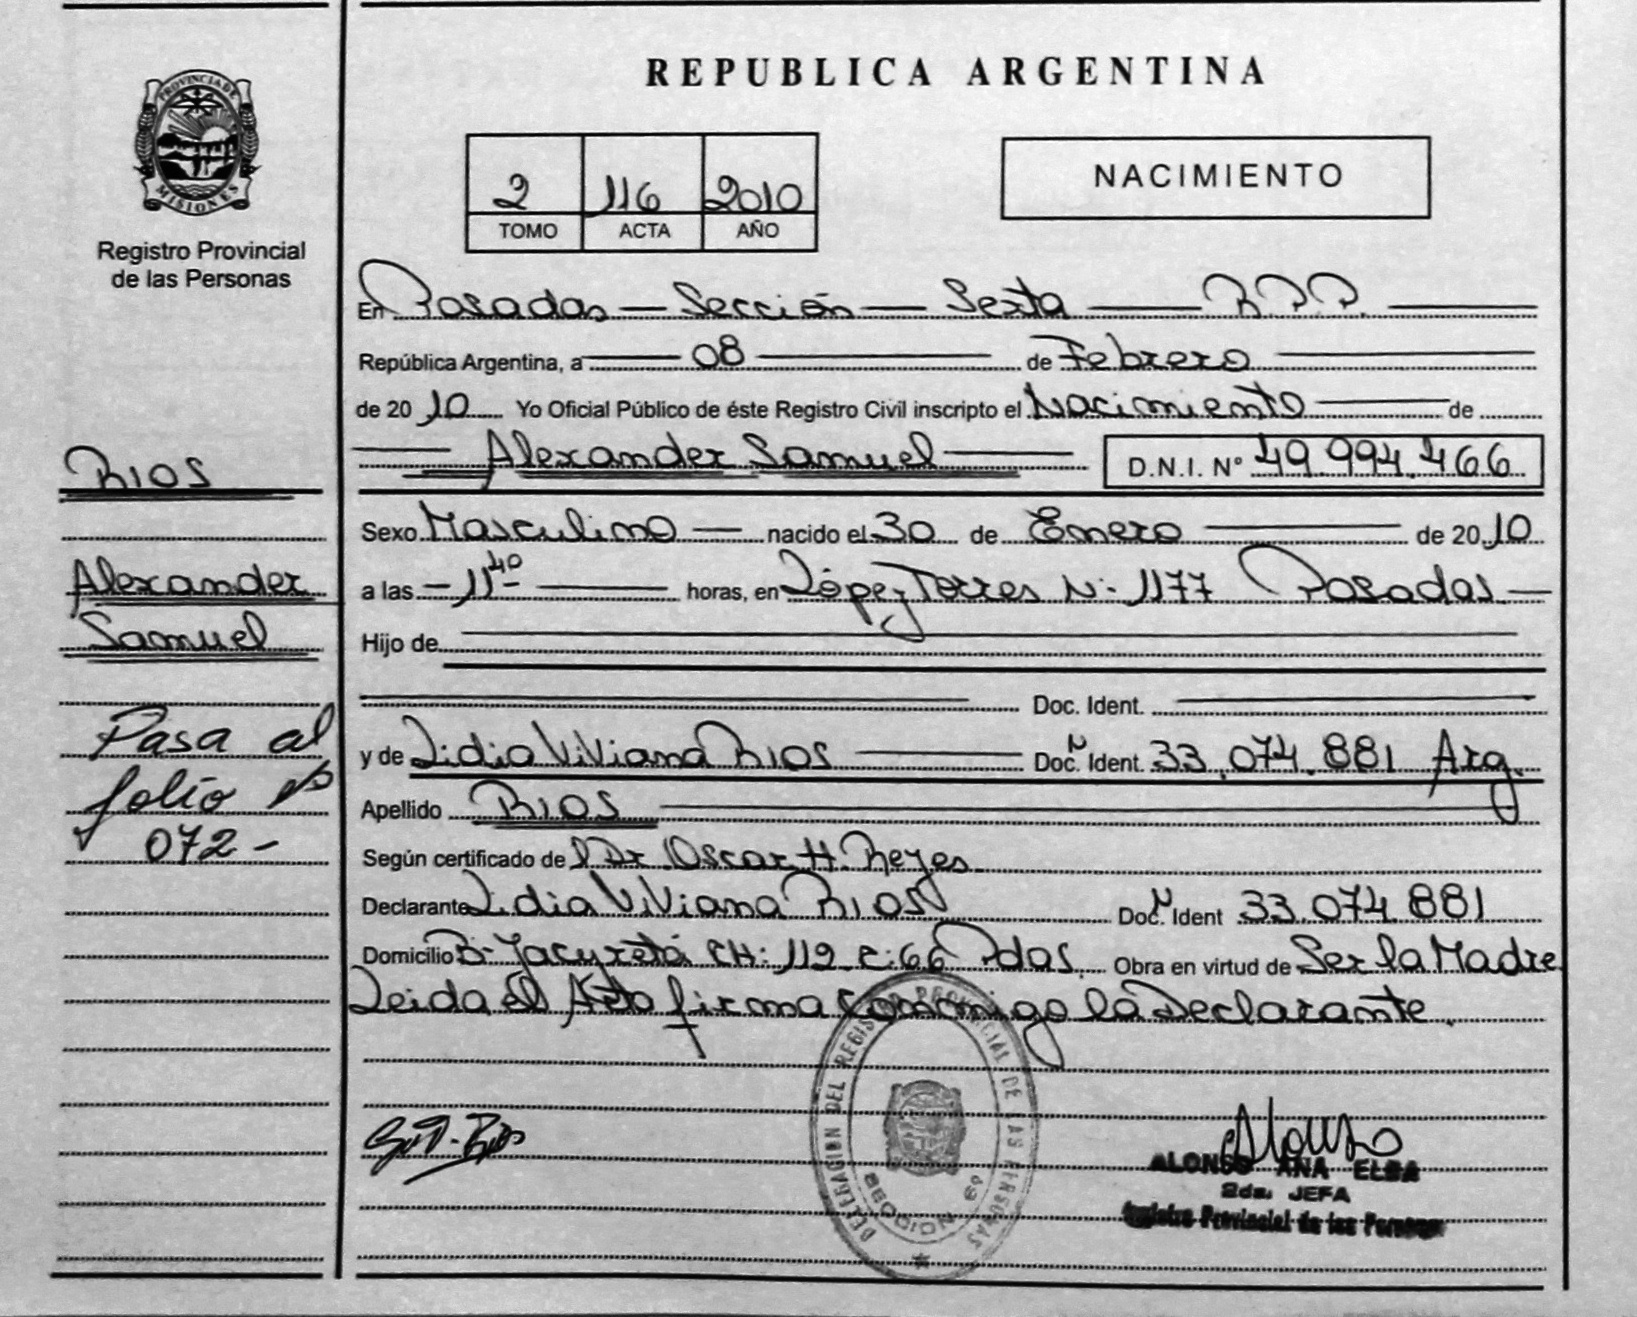 REPUBLICA ARGENTINA
PROVINCIA DE
MISIONES
Registro Provincial
de las Personas
2 116 2010
TOMO ACTA AÑO
NACIMIENTO
En Posadas — Sección — Sexta — R.P.P.
República Argentina, a 08 de Febrero
de 20 10 Yo Oficial Público de éste Registro Civil inscripto el Nacimiento de
Alexander Samuel D.N.I. Nº 49.994.466
Sexo Masculino — nacido el 30 de Enero de 20 10
a las — 11 40 — horas, en López Torres N: 1177 Posadas —
Hijo de
Doc. Ident.
y de Lidia Viviana RIOS Doc. N Ident. 33.074.881 Arg.
Apellido RIOS
Según certificado del Dr Oscar H. Reyes
Declarante Lidia Viviana RIOS Doc. N Ident 33.074.881
Domicilio B- Yacyretá CH: 112 C: 66 Pdas. Obra en virtud de Ser la Madre
Leida el Acta firma conmigo la Declarante.
RIOS
Alexander
Samuel
Pasa al
folio Nº
072 -
DELEGACION DEL REGISTRO PROVINCIAL DE LAS PERSONAS
SECCION 6º
ALONSO ANA ELBA
2da. JEFA
Registro Provincial de las Personas